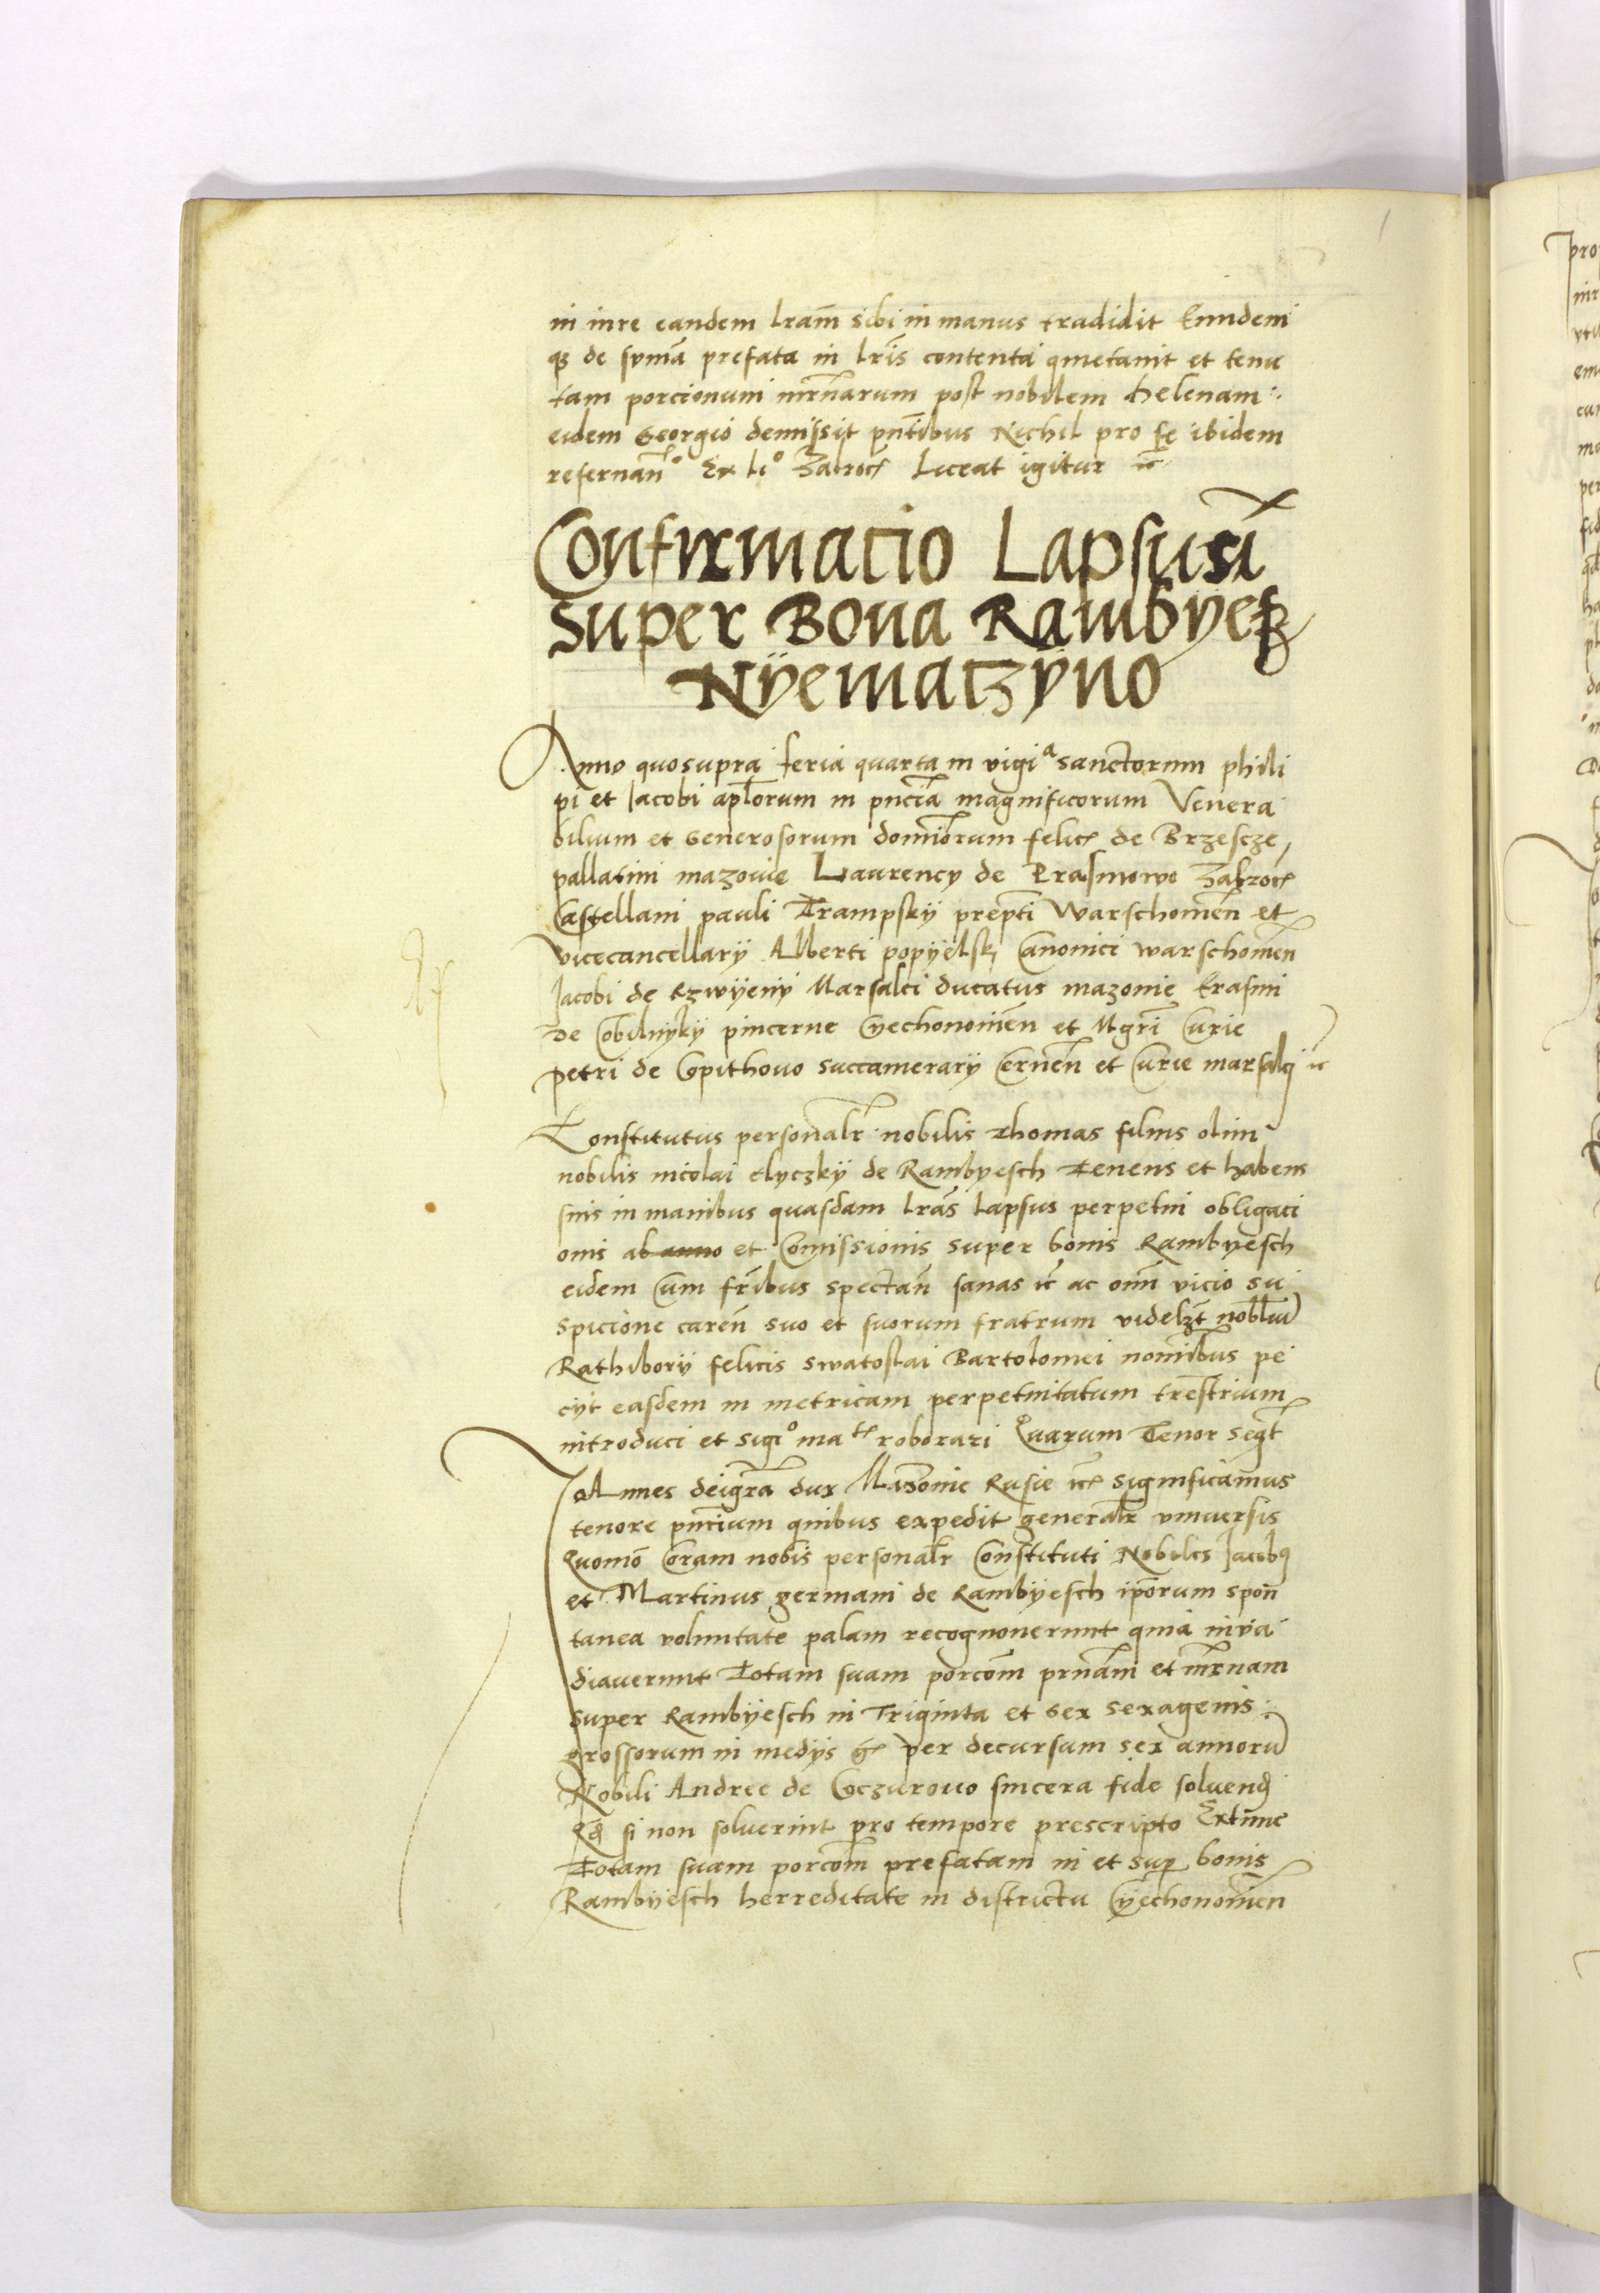 in iure eandem lram̄ sibi in manus tradidit Eundem
qz de sum̄a prefata in lris̄ contenta quietauit et tenu
tam porcionum mrn̄arum post nobilem Helenam
eidem Georgio demissit pn̄tibus Nichil pro se ibidem
reseruan̄º Ex liº Zacrocz Liceat igitur ⁊c̄
Confirmacio Lapsus
super Bona Rambyesz
Nÿematzÿno
Anno quosupra feria quarta in vigiª sanctorum phili
pi et Jacobi apl̄orum in pn̄cia magnificorum Venera
bilium et Generosorum domi̅orum felic̄ de Brzescze,
pallatini mazouie Laurency de Prasmowo Zakrocz
Castellani pauli Trampskÿ prep̄ti Warschouien̄ et
vicecancellarÿ Alberti popÿelsk̄ Canonici warschouien̄
Jacobi de Rzwÿenÿ Marsalci ducatus mazouie Erasmi
de Cobilnÿkÿ pincerne Cyechonouien̄ et Mgri̅ Curie
petri de Copithouo succamerarÿ Cernen̄ et Curie marsalci ⁊c̄
Constitutus personalr̄ nobilis Thomas filius olim
nobilis nicolai clyczkÿ de Rambyesch Tenens et habens
suis in manibus quasdam lras̄ lapsus perpetui obligaci
onis ab anno et Comissionis super bonis Rambyesch
eidem Cum fr̄ibus spectan̄ sanas ⁊c̄ ac om̄i vicio su
spicione caren̄ suo et suorum fratrum videlzt̄ nobl̄iū
Rathiborÿ felicis swatoslai Bartolomei nomi̅bus pe
cÿt easdem in metricam perpetuitatum tr̄estrium
introduci et sigiº maᵗⁱ roborari Quarum Tenor seqt̄
Joannes deigra̅ dux Mazouie Rusie ⁊c̄ significamus
tenore pn̄tium quibus expedit generalr̄ vniuersis
Quomo̅ Coram nobis personalr̄ Constituti Nobiles Jacobꝰ
et Martinus germani de Rambÿesch ip̄orum spon̄
tanea voluntate palam recognouerunt quia inua
diauerunt Totam suam porcom̄ prn̄am et mr̄nam
super Rambÿesch in Triginta et sex sexagenis
grossorum in medÿs gͫ per decursum sex annorū
Nobili Andree de Coczurouo sincera fide soluend̄
Qd̄ si non soluerint pro tempore prescripto Extunc
Totam suam porcom̄ prefatam in et sup̄ bonis
Rambÿesch herreditate in districtu Cÿechonouien̄